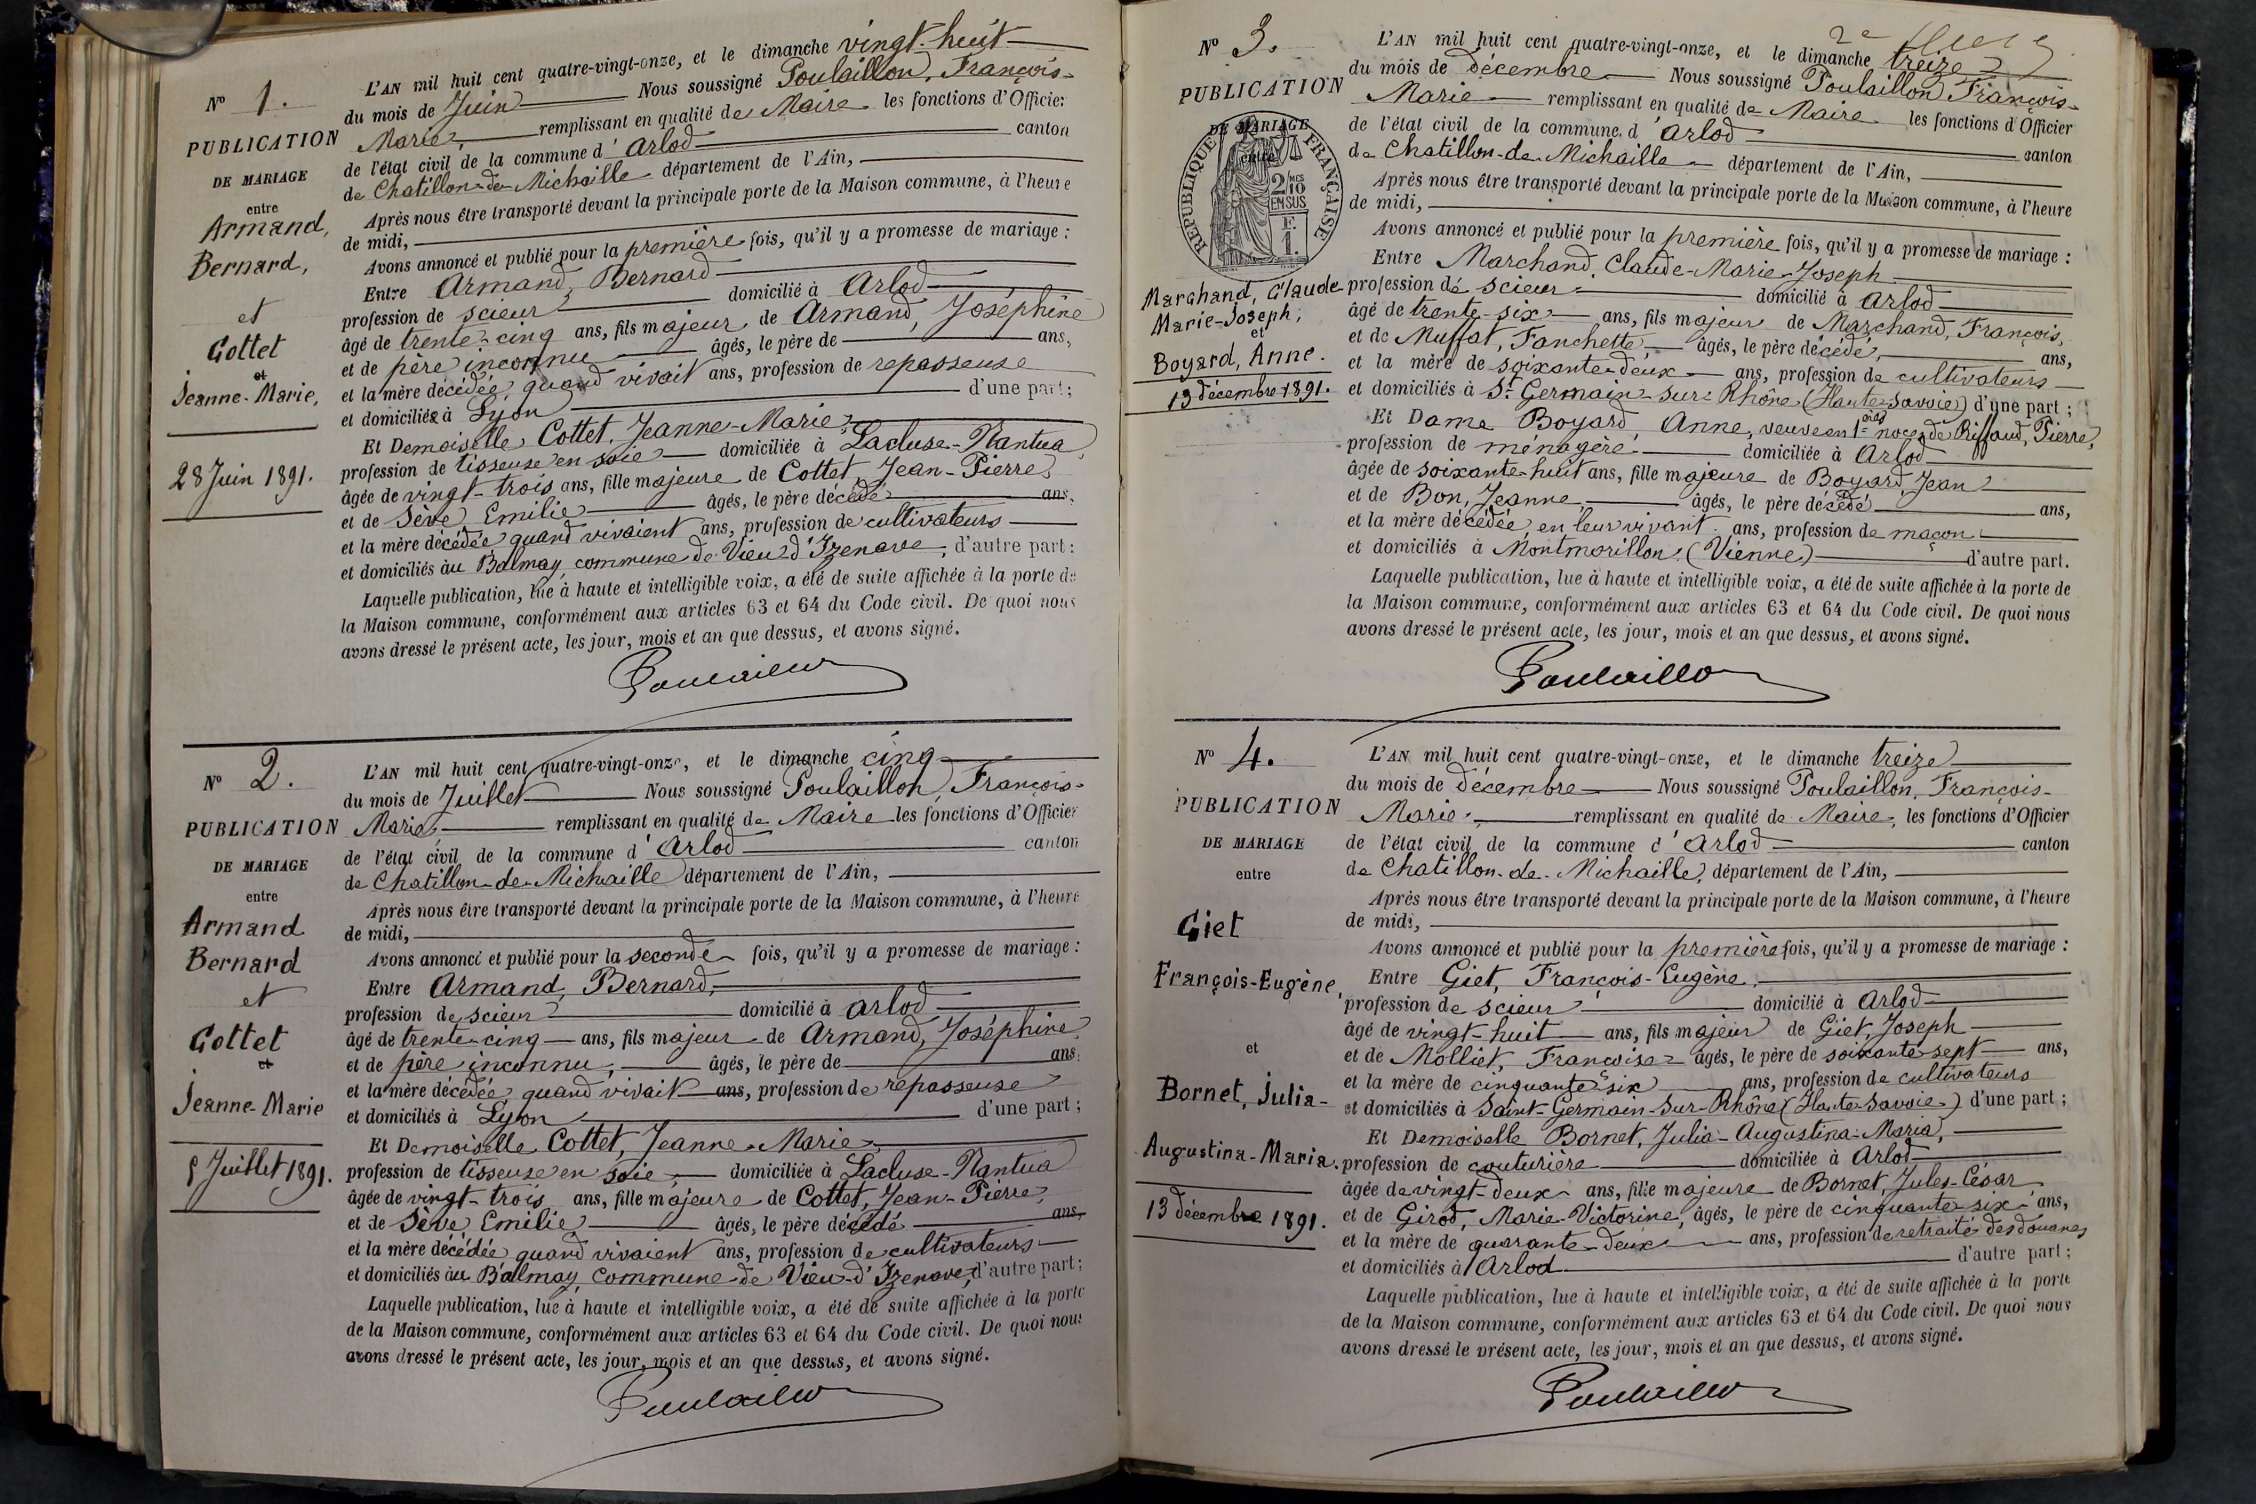 N° 1.
PUBLICATION
DE MARIAGE
entre
Armand,
Bernard,
et
Cottet
Jeanne-Marie,
28 Juin 1891.
L'AN mil huit cent quatre-vingt-onze, et le dimanche vingt-huit
du mois de Juin Nous soussigné Poulaillon, François-
Marie, remplissant en qualité de Maire les fonctions d'Officier
de l'état civil de la commune d'Arlod canton
de Chatillon-de-Michaille département de l'Ain,
Après nous être transporté devant la principale porte de la Maison commune, à l'heure
de midi,
Avons annoncé et publié pour la première fois, qu'il y a promesse de mariage :
Entre Armand, Bernard
profession de scieur domicilié à Arlod
âgé de trente-cinq ans, fils majeur de Armand, Joséphine
et de père inconnu âgés, le père de ans,
et la mère décédée, quand vivait ans, profession de repasseuse
et domiciliés à Lyon d'une part ;
Et Demoiselle Cottet, Jeanne-Marie
profession de tisseuse en soie domiciliée à Lacluse-Nantua,
âgée de vingt-trois ans, fille majeure de Cottet, Jean-Pierre,
et de Sève, Emilie âgés, le père décédé ans,
et la mère décédée quand vivaient ans, profession de cultivateurs
et domiciliés au Balmay, commune de Vieu-d'Izenave, d'autre part :
Laquelle publication, lue à haute et intelligible voix, a été de suite affichée à la porte de
la Maison commune, conformément aux articles 63 et 64 du Code civil. De quoi nous
avons dressé le présent acte, les jour, mois et an que dessus, et avons signé.
Poulaillon
N° 2.
PUBLICATION
DE MARIAGE
entre
Armand
Bernard
et
Cottet
Jeanne-Marie
5 Juillet 1891.
L'AN mil huit cent quatre-vingt-onze, et le dimanche cinq
du mois de Juillet Nous soussigné Poulaillon, François-
Marie, remplissant en qualité de Maire les fonctions d'Officier
de l'état civil de la commune d'Arlod canton
de Chatillon-de-Michaille département de l'Ain,
Après nous être transporté devant la principale porte de la Maison commune, à l'heure
de midi,
Avons annoncé et publié pour la seconde fois, qu'il y a promesse de mariage :
Entre Armand, Bernard,
profession de scieur domicilié à Arlod
âgé de trente-cinq ans, fils majeur de Armand, Joséphine
et de père inconnu, âgés, le père de ans,
et la mère décédée, quand vivait ans, profession de repasseuse
et domiciliés à Lyon d'une part ;
Et Demoiselle Cottet, Jeanne-Marie,
profession de tisseuse en soie, domiciliée à Lacluse-Nantua
âgée de vingt-trois ans, fille majeure de Cottet, Jean-Pierre,
et de Sève, Emilie âgés, le père décédé ans,
et la mère décédée quand vivaient ans, profession de cultivateurs
et domiciliés au Balmay, commune de Vieu-d'Izenave, d'autre part ;
Laquelle publication, lue à haute et intelligible voix, a été de suite affichée à la porte
de la Maison commune, conformément aux articles 63 et 64 du Code civil. De quoi nous
avons dressé le présent acte, les jour, mois et an que dessus, et avons signé.
Poulaillon
2e
N° 3.
PUBLICATION
DE MARIAGE
entre
RÉPUBLIQUE FRANÇAISE
2/10 MES
EN SUS
F.
1.
Marchand, Claude-
Marie-Joseph,
et
Boyard, Anne.
13 décembre 1891.
L'AN mil huit cent quatre-vingt-onze, et le dimanche treize
du mois de décembre Nous soussigné Poulaillon, François-
Marie remplissant en qualité de Maire les fonctions d'Officier
de l'état civil de la commune d'Arlod canton
de Chatillon-de-Michaille département de l'Ain,
Après nous être transporté devant la principale porte de la Maison commune, à l'heure
de midi,
Avons annoncé et publié pour la première fois, qu'il y a promesse de mariage :
Entre Marchand, Claude-Marie-Joseph
profession de scieur domicilié à Arlod
âgé de trente-six ans, fils majeur de Marchand, François,
et de Muffat, Fanchette âgés, le père décédé, ans,
et la mère de soixante-deux ans, profession de cultivateurs
et domiciliés à St Germain-sur-Rhône (Haute-Savoie) d'une part ;
Et Dame Boyard Anne, veuve en 1ères noces de Riffaud, Pierre,
profession de ménagère domiciliée à Arlod
âgée de soixante-huit ans, fille majeure de Boyard, Jean
et de Bon, Jeanne, âgés, le père décédé ans,
et la mère décédée, en leur vivant ans, profession de maçon
et domiciliés à Montmorillon (Vienne) d'autre part.
Laquelle publication, lue à haute et intelligible voix, a été de suite affichée à la porte de
la Maison commune, conformément aux articles 63 et 64 du Code civil. De quoi nous
avons dressé le présent acte, les jour, mois et an que dessus, et avons signé.
Poulaillon
N° 4.
PUBLICATION
DE MARIAGE
entre
Giet
François-Eugène,
et
Bornet, Julia-
Augustina-Maria.
13 décembre 1891.
L'AN mil huit cent quatre-vingt-onze, et le dimanche treize
du mois de décembre Nous soussigné Poulaillon, François-
Marie, remplissant en qualité de Maire, les fonctions d'Officier
de l'état civil de la commune d'Arlod canton
de Chatillon-de-Michaille, département de l'Ain,
Après nous être transporté devant la principale porte de la Maison commune, à l'heure
de midi,
Avons annoncé et publié pour la première fois, qu'il y a promesse de mariage :
Entre Giet, François-Eugène,
profession de scieur domicilié à Arlod
âgé de vingt-huit ans, fils majeur de Giet, Joseph
et de Molliet, Françoise âgés, le père de soixante-sept ans,
et la mère de cinquante-six ans, profession de cultivateurs
et domiciliés à Saint-Germain-sur-Rhône (Haute-Savoie) d'une part ;
Et Demoiselle Bornet, Julia-Augustina-Maria,
profession de couturière domiciliée à Arlod
âgée de vingt-deux ans, fille majeure de Bornet, Jules-César
et de Girod, Marie-Victorine, âgés, le père de cinquante-six ans,
et la mère de quarante-deux ans, profession de retraité des douanes
et domiciliés à Arlod d'autre part ;
Laquelle publication, lue à haute et intelligible voix, a été de suite affichée à la porte
de la Maison commune, conformément aux articles 63 et 64 du Code civil. De quoi nous
avons dressé le présent acte, les jour, mois et an que dessus, et avons signé.
Poulaillon